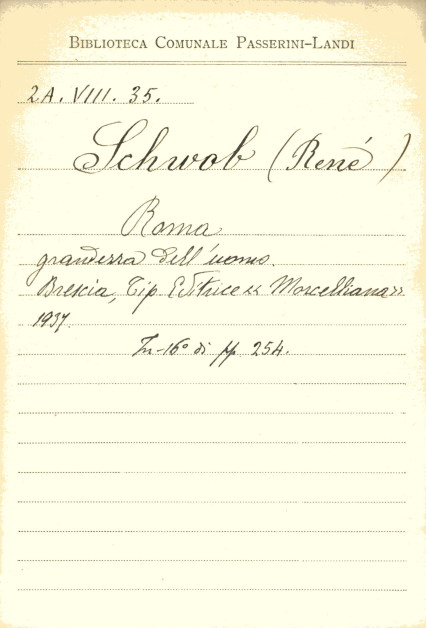 BIBLIOTECA COMUNALE PASSERINI-LANDI
2A. VIII. 35.
Schwob (René)
Roma
grandezza dell'uomo.
Brescia, Tip. Editrice «Morcelliana»
1937.
In-16° di pp. 254.